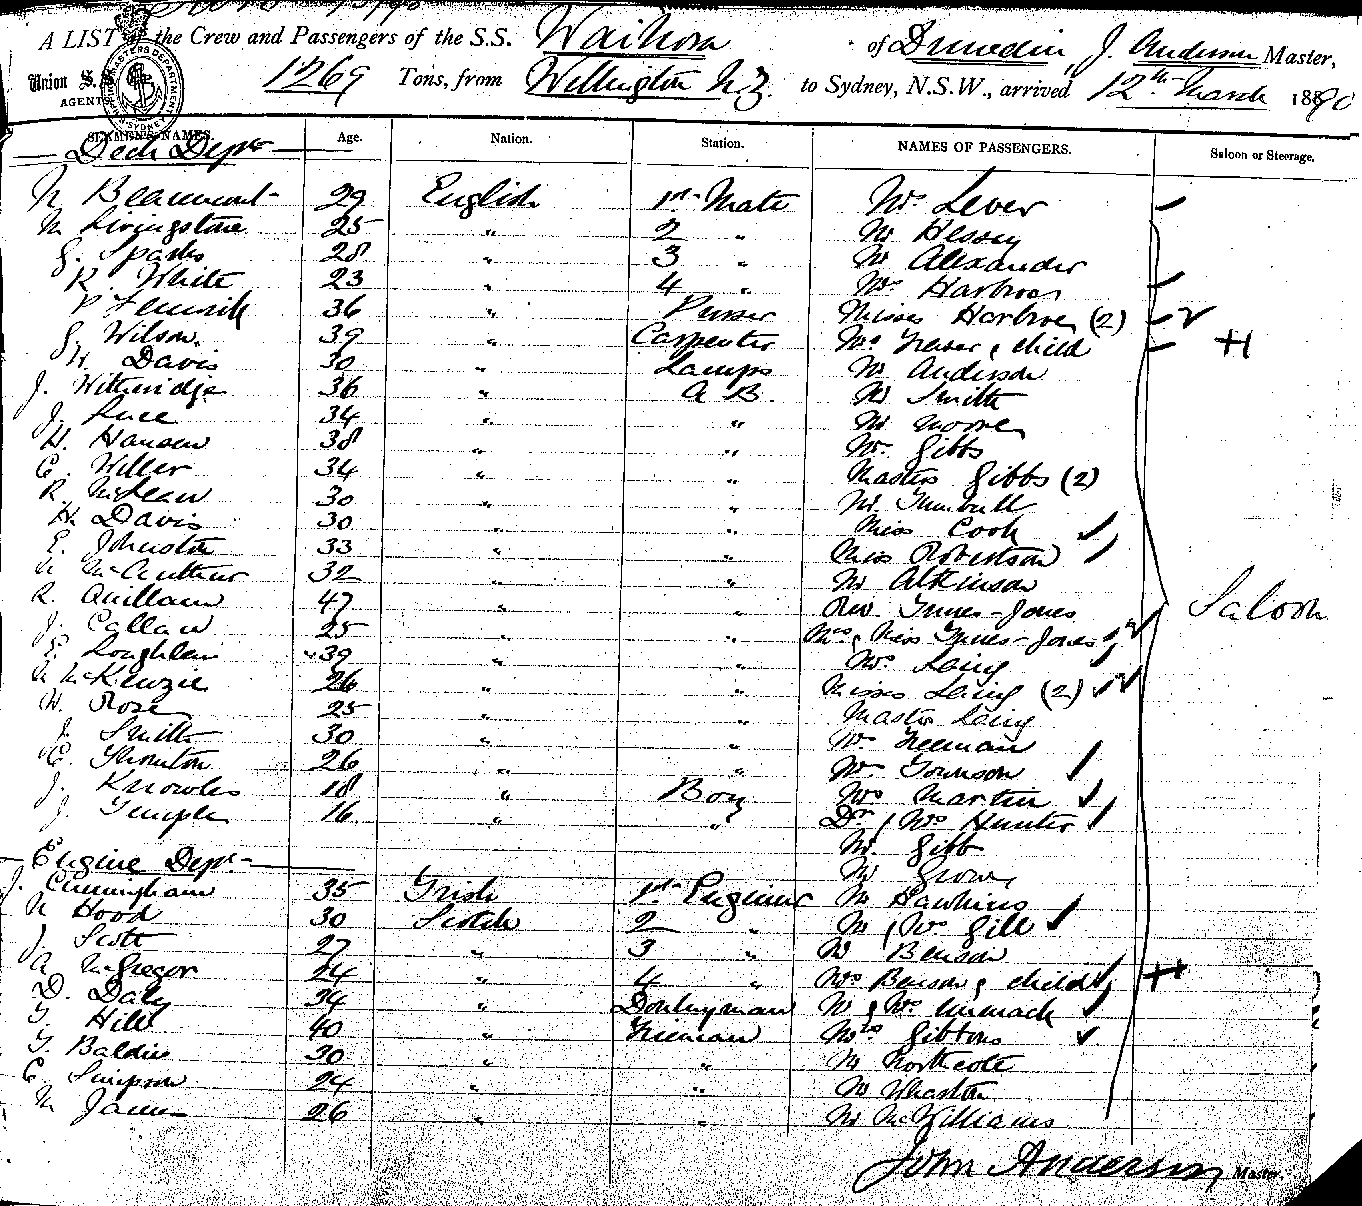 A LIST of the Crew and Passengers of the S.S. Waihora of Dunedin, J. Anderson Master,
Union S.S. 1269 Tons, from Wellington N.Z. to Sydney, N.S.W., arrived 12th March 1890
AGENTS
SEAMEN'S NAMES. Age. Nation. Station. NAMES OF PASSENGERS. Saloon or Steerage.
Deck Dept
Beaumont 29 English 1st Mate Mrs Lever
M Livingstone 25 " 2 " Mr Hessey
G. Sparks 28 " 3 " Mr Alexander
R. White 23 " 4 " Mrs Harbroe
P 36 " Purser Misses Harbroe (2)
G Wilson 39 " Carpenter Mrs Fraser & child H
W Davis 30 " Lamps Mr Anderson
J. Witheridge 36 " A B. Mr Smith
J. Luce 34 " " Mr Moore
H. Hansen 38 " " Mr Gibbs
C. Willer 34 " " Masters Gibbs (2)
R. McLean 30 " " Mr Turnbull
H. Davis 30 " " Miss Cook
E. Johnston 33 " " Miss Robertson
A McArthur 32 " " Mr Atkinson
R. Quillam 47 " " Rev Innes-Jones Saloon
J. Callan 25 " " Mrs & Miss Innes-Jones
E. Loughlan 39 " " Mrs Laing
A McKenzie 26 " " Misses Laing (2)
W. Rose 25 " " Master Laing
J. Smith 30 " " Mr Freeman
C. Thornton 26 " " Mrs Townson
J. Knowles 18 " Boy Mrs Martin
J Temple 16 " " Dr & Mrs Hunter
Mr Gibb
Engine Dept Mr Grove
J. Cunningham 35 Irish 1st Engineer Mr Hawkins
A Hood 30 Scotch 2 " Mr & Mrs Gill
J. Scott 27 " 3 " Mr Benson
A McGregor 24 " 4 " Mrs Benson & child H
D. Daly 34 " Donkeyman Mr & Mrs
T. Hill 40 " Fireman Mrs Gibbons
T. Baldie 30 " " Mr Northcote
C. Simpson 24 " " Mr Wharton
M James 26 " " Mr McWilliams
John Anderson Master.